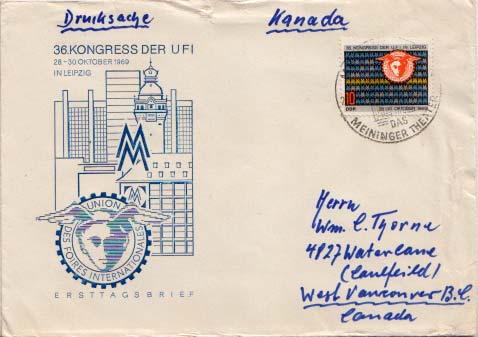 Drucksache
Kanada
36. KONGRESS DER UFI
28-30 OKTOBER 1969
IN LEIPZIG
36. KONGRESS DER U F I IN LEIPZIG
10
DDR
28-30. OKTOBER 1969
DAS
MEININGER THEATER
UNION
DES FOIRES INTERNATIONALES
ERSTTAGSBRIEF
Herrn
Wm. C. Thorne
4827 Waterlane
(Caulfeild)
West Vancouver B.C.
Canada